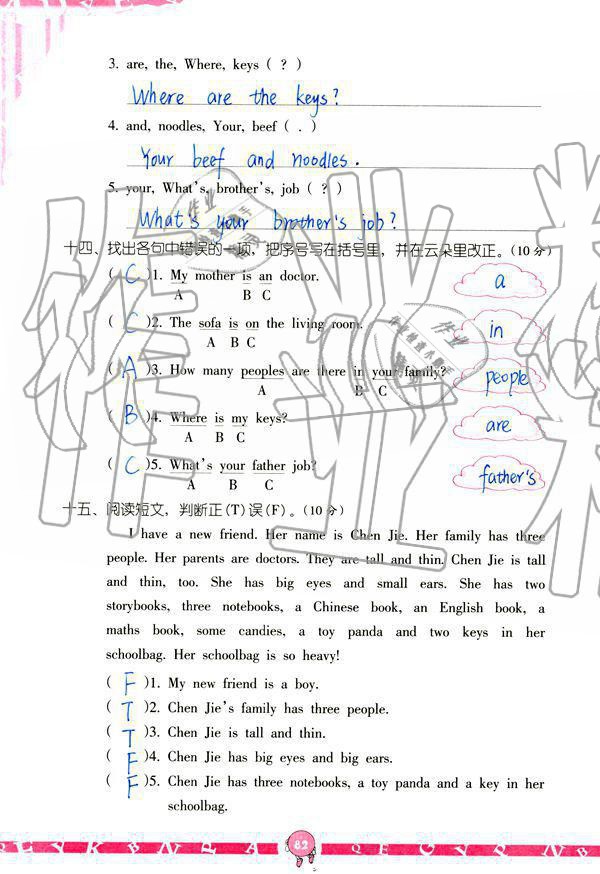 3. are, the, Where, keys ( ? )
Where are the keys?
4. and, noodles, Your, beef ( . )
Your beef and noodles.
5. your, What's, brother's, job ( ? )
What's your brother's job?
十四、找出各句中错误的一项，把序号写在括号里，并在云朵里改正。(10分)
( C )1. My mother is an doctor. a
A B C
( C )2. The sofa is on the living room. in
A B C
( A )3. How many peoples are there in your family? people
A B C
( B )4. Where is my keys? are
A B C
( C )5. What's your father job? father's
A B C
十五、阅读短文，判断正(T)误(F)。(10分)
I have a new friend. Her name is Chen Jie. Her family has three
people. Her parents are doctors. They are tall and thin. Chen Jie is tall
and thin, too. She has big eyes and small ears. She has two
storybooks, three notebooks, a Chinese book, an English book, a
maths book, some candies, a toy panda and two keys in her
schoolbag. Her schoolbag is so heavy!
( F )1. My new friend is a boy.
( T )2. Chen Jie's family has three people.
( T )3. Chen Jie is tall and thin.
( F )4. Chen Jie has big eyes and big ears.
( F )5. Chen Jie has three notebooks, a toy panda and a key in her
schoolbag.
82